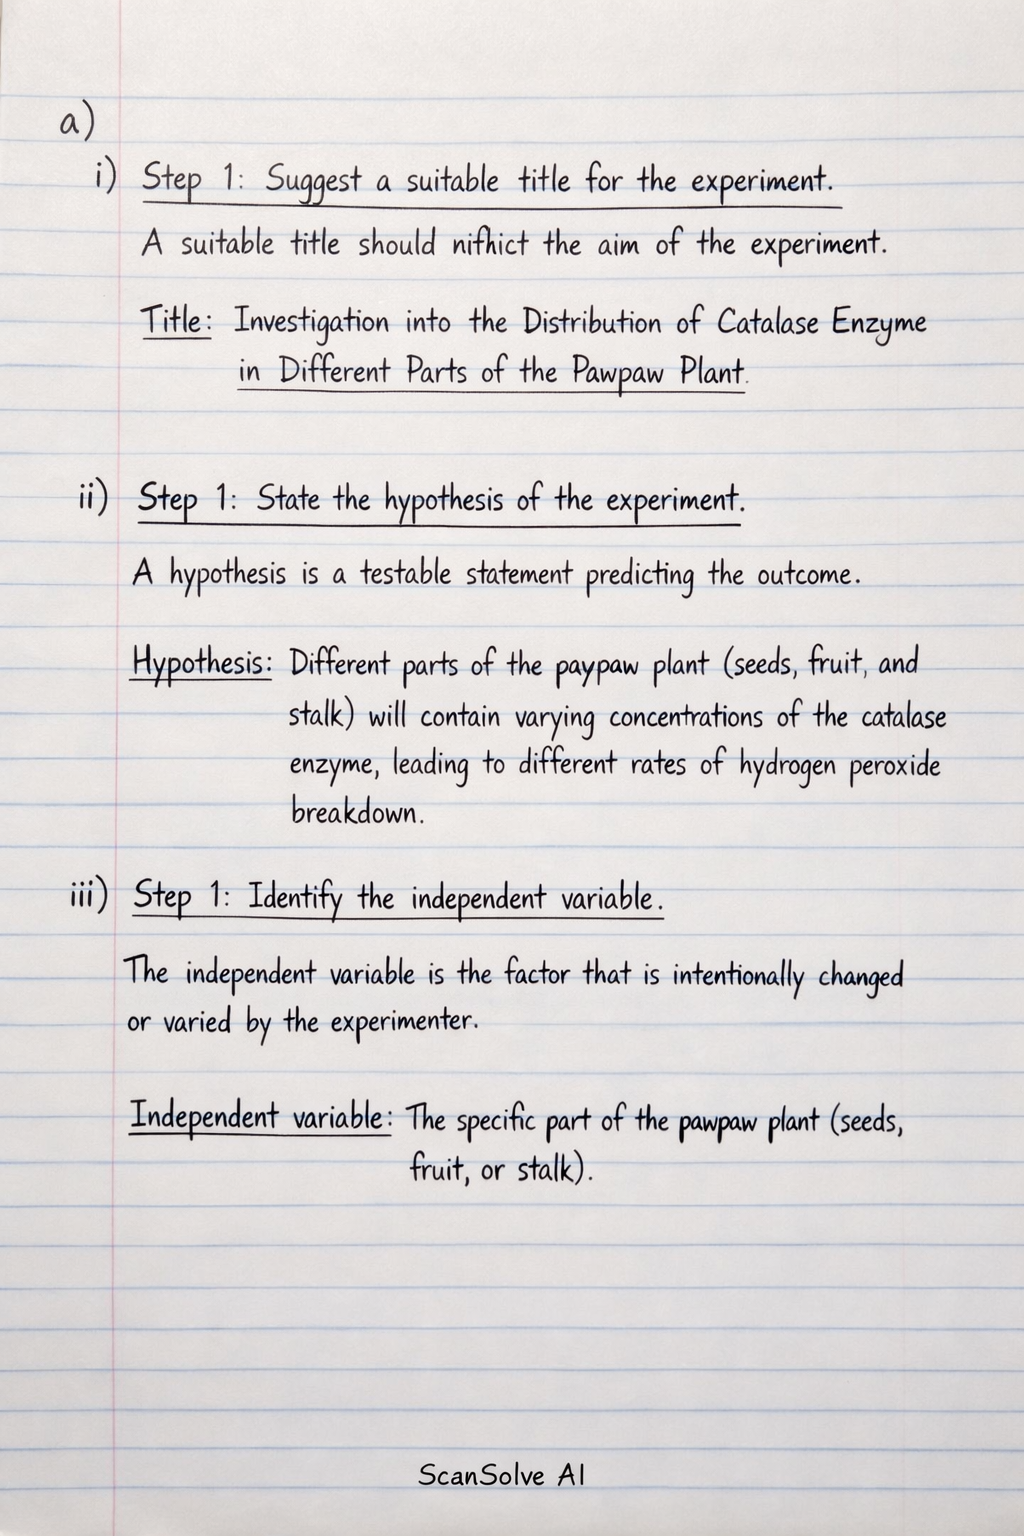 a)
i) Step 1: Suggest a suitable title for the experiment.
A suitable title should nifhict the aim of the experiment.
Title: Investigation into the Distribution of Catalase Enzyme
in Different Parts of the Pawpaw Plant.
ii) Step 1: State the hypothesis of the experiment.
A hypothesis is a testable statement predicting the outcome.
Hypothesis: Different parts of the paypaw plant (seeds, fruit, and
stalk) will contain varying concentrations of the catalase
enzyme, leading to different rates of hydrogen peroxide
breakdown.
iii) Step 1: Identify the independent variable.
The independent variable is the factor that is intentionally changed
or varied by the experimenter.
Independent variable: The specific part of the pawpaw plant (seeds,
fruit, or stalk).
ScanSolve AI